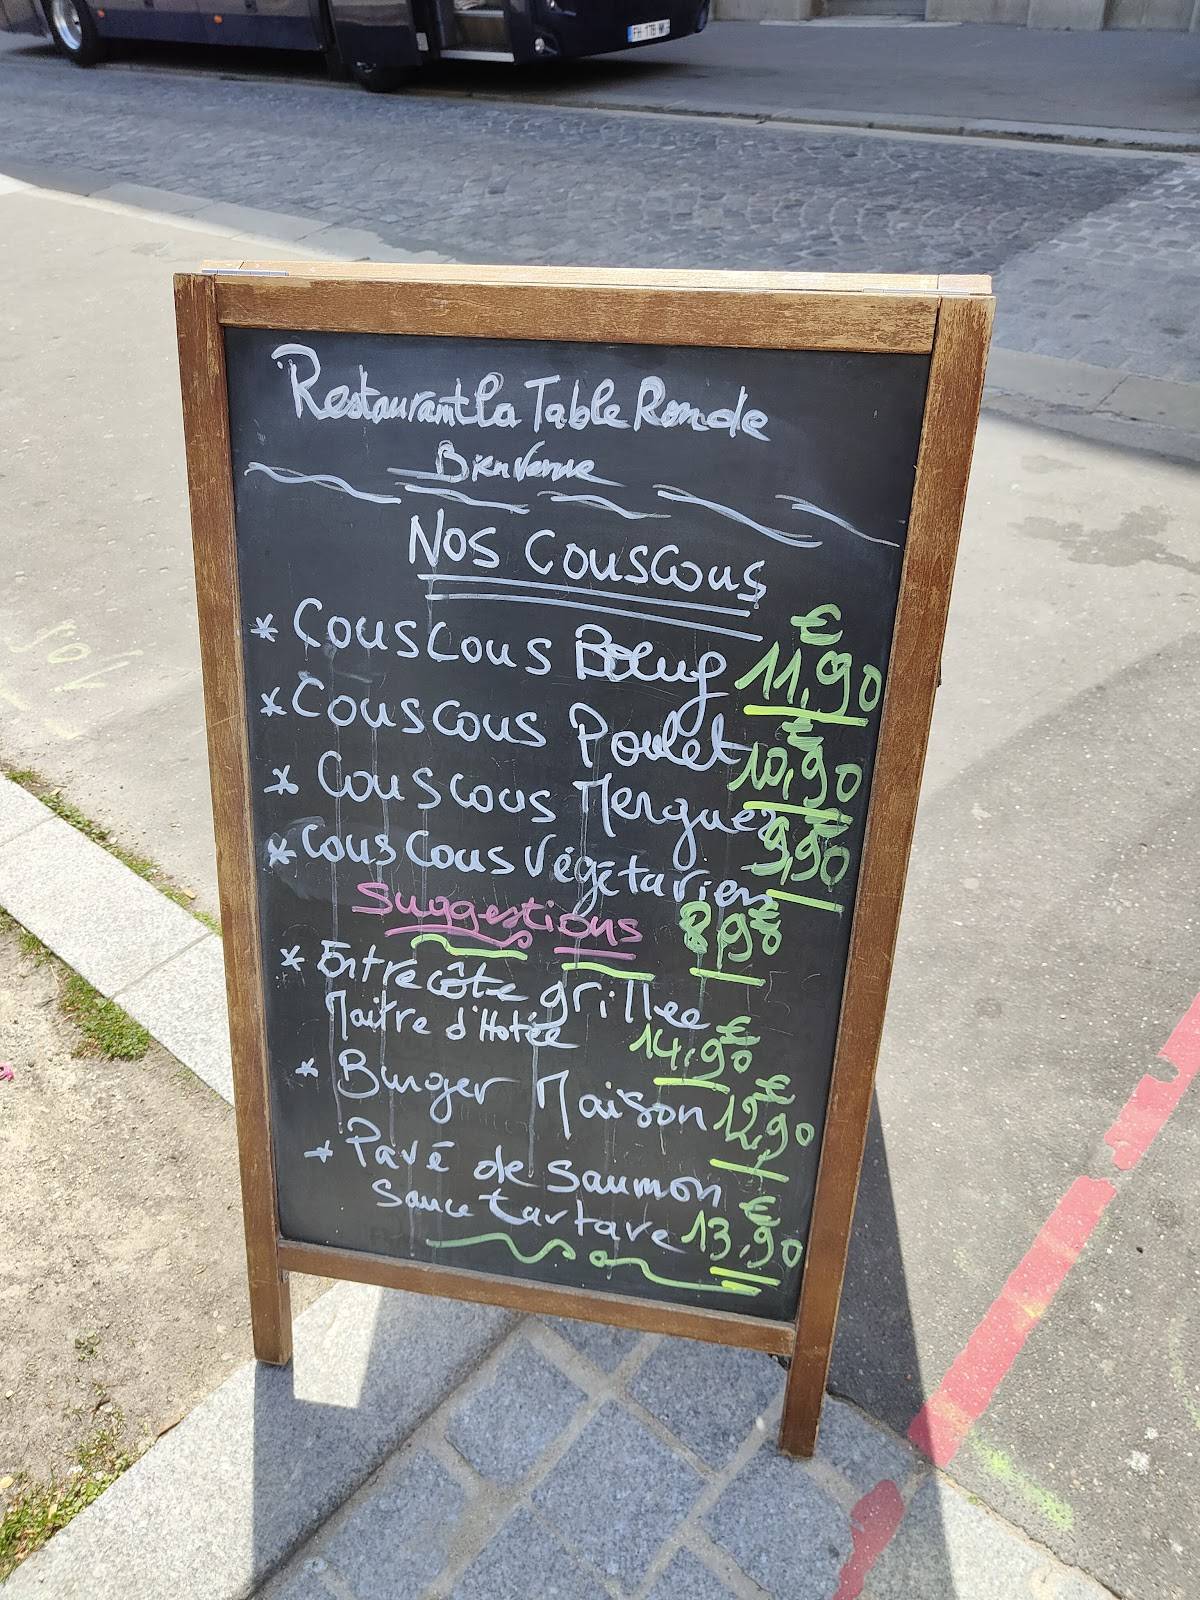 Restaurant La Table Ronde
Bienvenue
Nos Couscous
* Couscous Bœuf 11,90 €
* Couscous Poulet 10,90 €
* Couscous Merguez 9,90 €
* Couscous Végétarien 8,90 €
Suggestions
* Entrecôte grillee
Maitre d'Hotée 14,90 €
* Burger Maison 12,90 €
* Pavé de Saumon
Sauce tartare 13,90 €